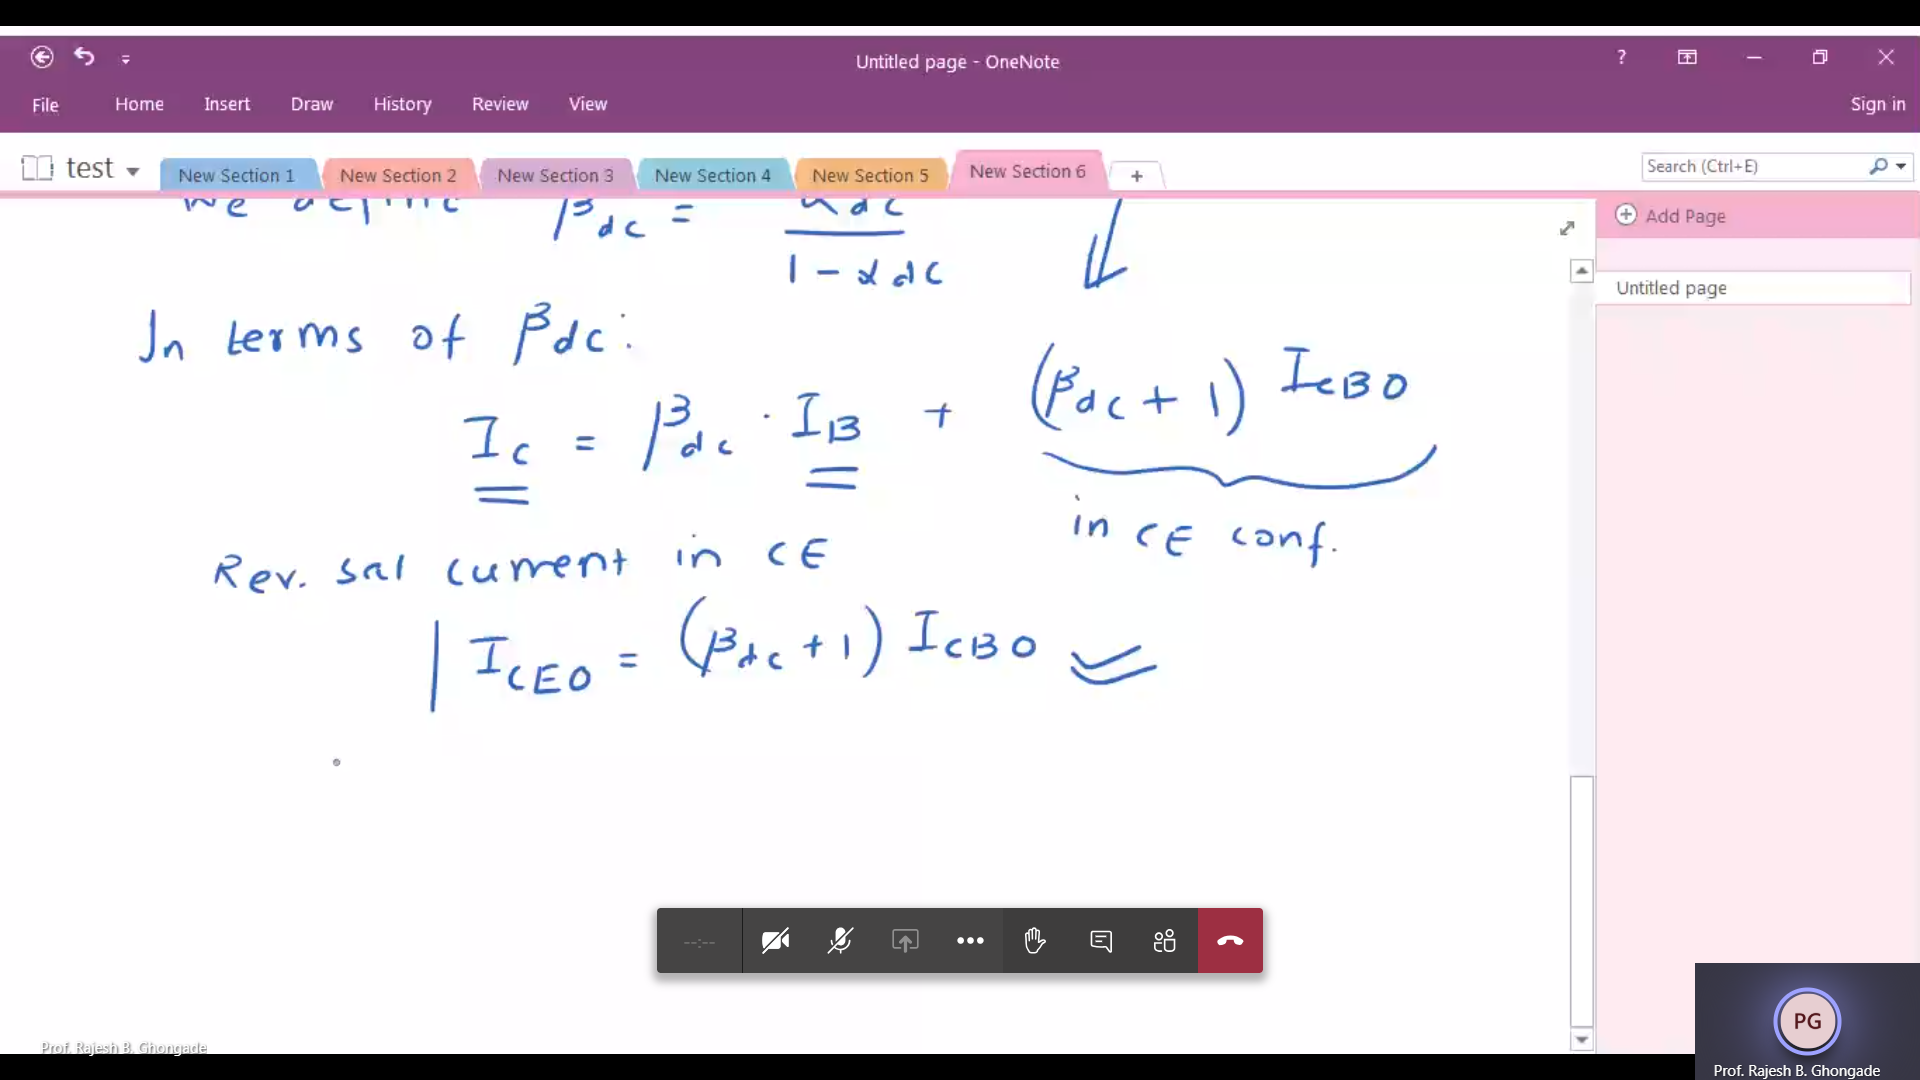 Untitled page - OneNote
?
File Home Insert Draw History Review View
Sign in
test New Section 1 New Section 2 New Section 3 New Section 4 New Section 5 New Section 6 +
Search (Ctrl+E)
Add Page
Untitled page
We define βdc = αdc
1 - αdc
In terms of βdc :
IC = βdc · IB + (βdc + 1) ICBO
in CE conf.
Rev. sat current in CE
ICEO = (βdc + 1) ICBO
--:--
PG
Prof. Rajesh B. Ghongade
Prof. Rajesh B. Ghongade